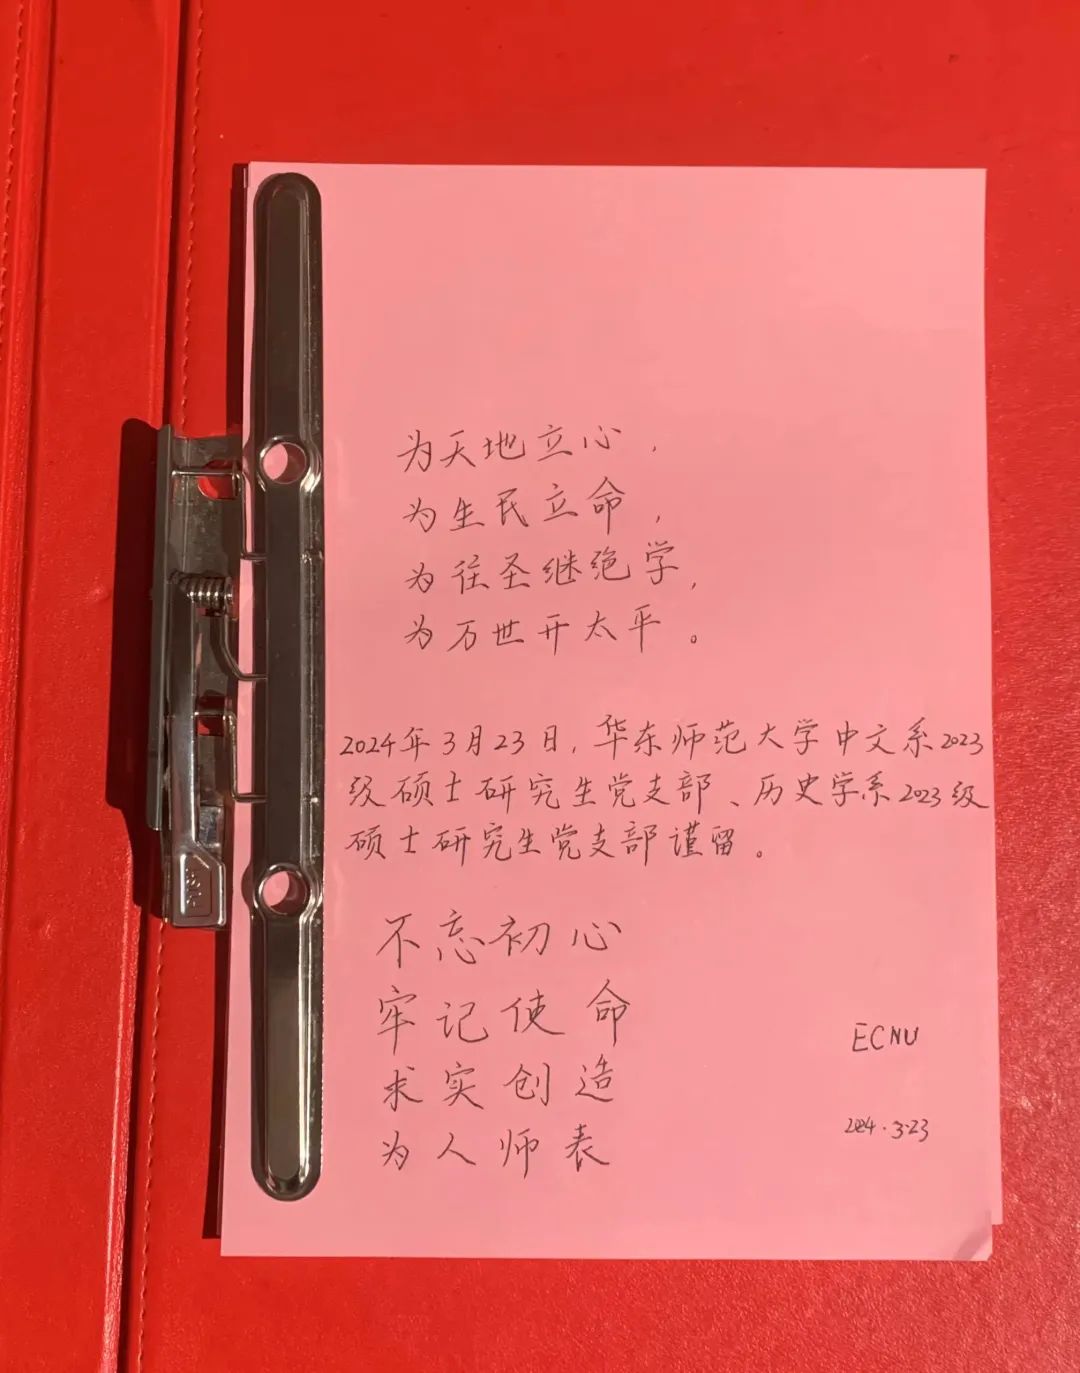 为天地立心，
为生民立命，
为往圣继绝学，
为万世开太平。
2024年3月23日，华东师范大学中文系2023
级硕士研究生党支部、历史学系2023级
硕士研究生党支部谨留。
不忘初心
牢记使命
求实创造
为人师表
ECNU
2024.3.23